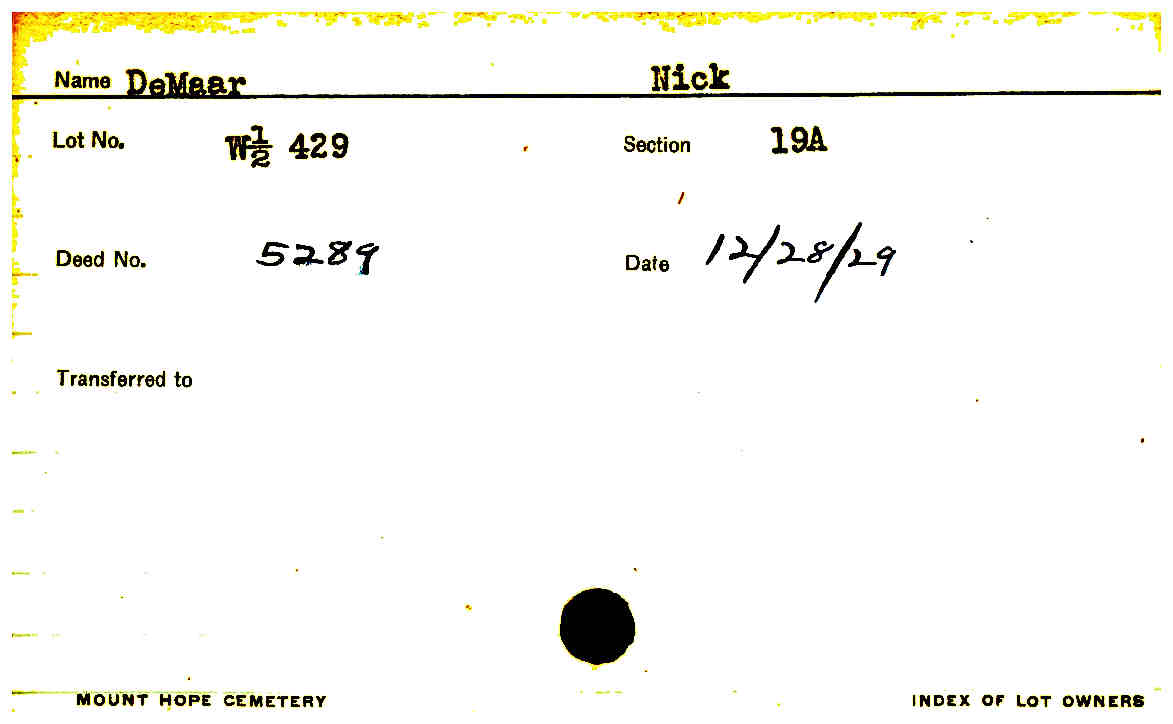 Name DeMaar Nick
Lot No. W½ 429 Section 19A
Deed No. 5289 Date 12/28/29
Transferred to
MOUNT HOPE CEMETERY INDEX OF LOT OWNERS